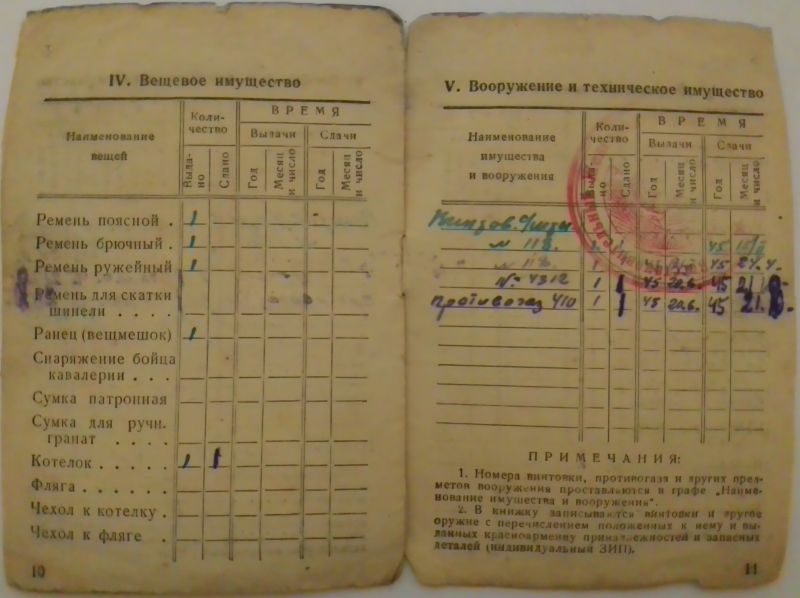 IV. Вещевое имущество
Наименование вещей
Коли-
чество
ВРЕМЯ
Выдачи
Сдачи
Выда-
но
Сдано
Год
Месяц
и число
Год
Месяц
и число
Ремень поясной . 1
Ремень брючный . 1
Ремень ружейный 1
Ремень для скатки
шинели . . . .
Ранец (вещмешок) 1
Снаряжение бойца
кавалерии . . .
Сумка патронная
Сумка для ручн.
гранат . . . .
Котелок . . . . 1 1
Фляга . . . . . .
Чехол к котелку .
Чехол к фляге .
10
V. Вооружение и техническое имущество
Наименование
имущества
и вооружения
Коли-
чество
ВРЕМЯ
Выдачи
Сдачи
Выда-
но
Сдано
Год
Месяц
и число
Год
Месяц
и число
1 1 45
1 45 24.4.
№ 4312 1 1 45 20.6. 45
противогаз 410 1 1 45 20.6. 45 21.
ПРИМЕЧАНИЯ:
1. Номера винтовки, противогаза и других пред-
метов вооружения проставляются в графе „Наиме-
нование имущества и вооружения".
2. В книжку записываются винтовки и другое
оружие с перечислением положенных к нему и вы-
данных красноармейцу принадлежностей и запасных
деталей (индивидуальный ЗИП).
11